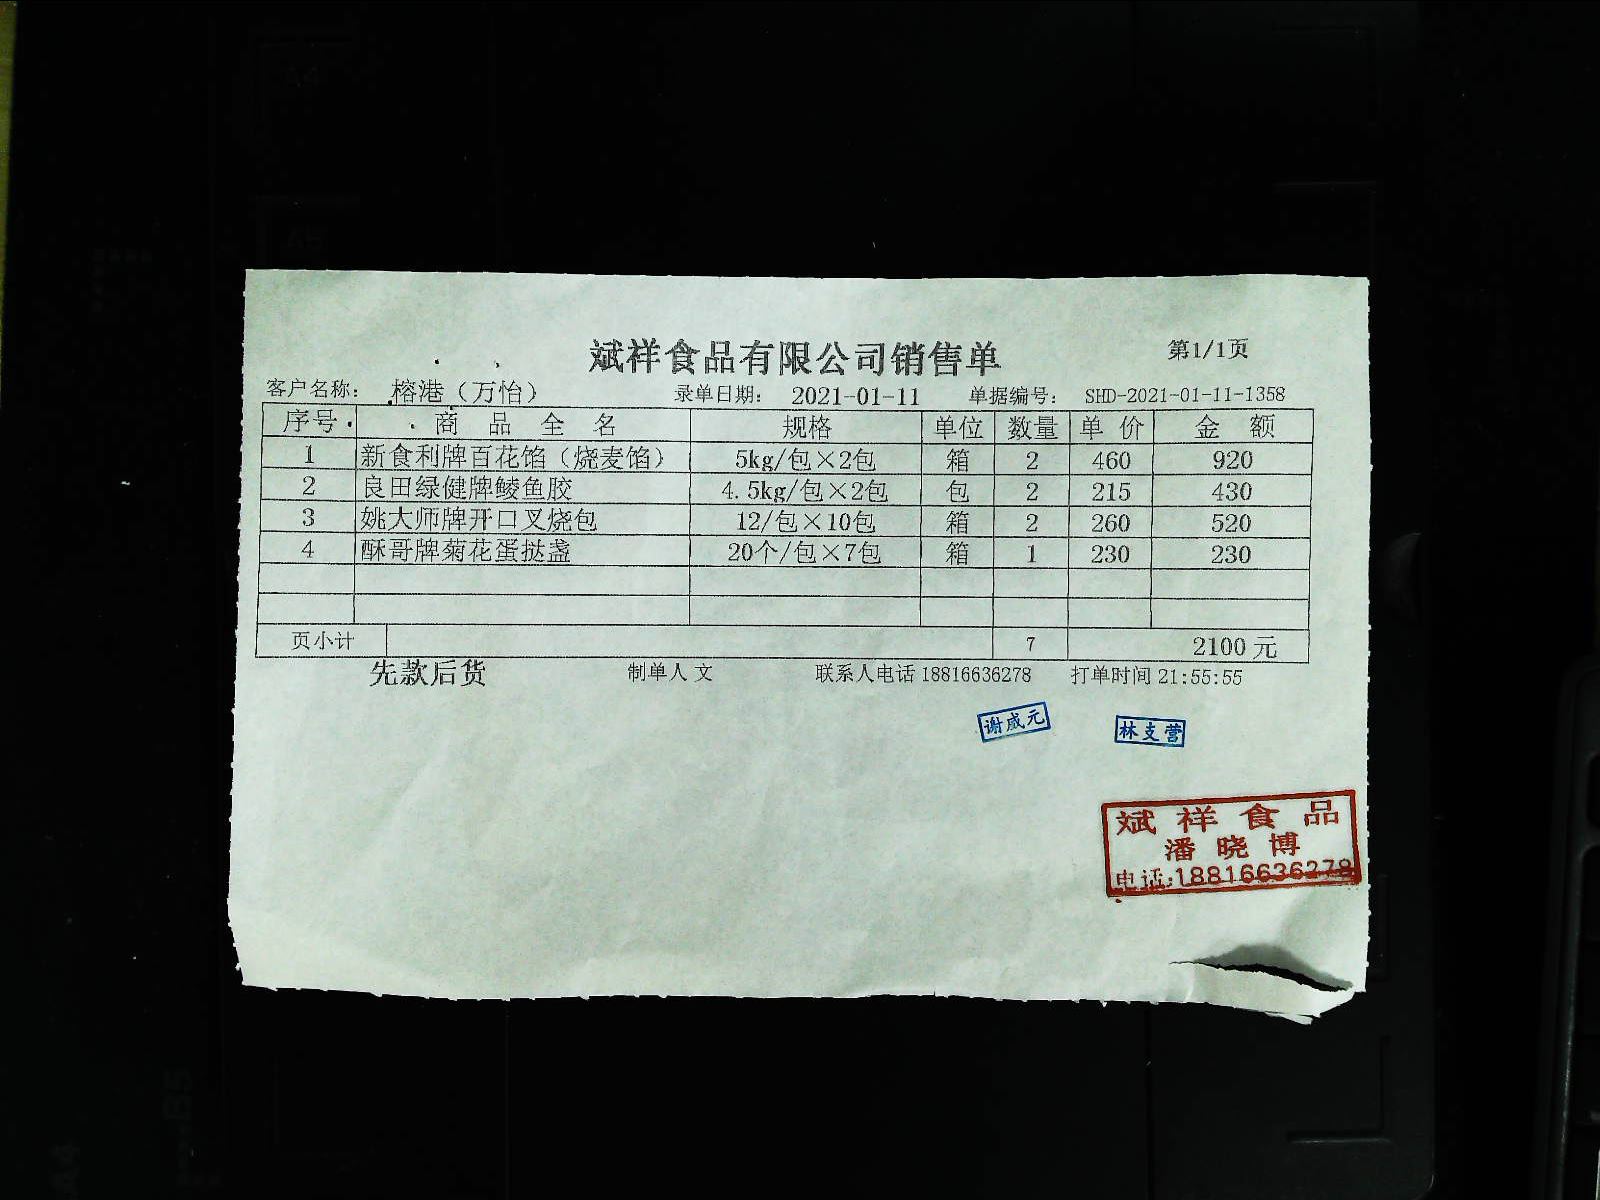 斌祥食品有限公司销售单 第1/1页
客户名称： 榕港（万怡） 录单日期： 2021-01-11 单据编号： SHD-2021-01-11-1358
序号 商品全名 规格 单位 数量 单价 金额
1 新食利牌百花馅（烧麦馅） 5kg/包×2包 箱 2 460 920
2 良田绿健牌鲮鱼胶 4.5kg/包×2包 包 2 215 430
3 姚大师牌开口叉烧包 12/包×10包 箱 2 260 520
4 酥哥牌菊花蛋挞盏 20个/包×7包 箱 1 230 230
页小计 7 2100元
先款后货 制单人 文 联系人电话 18816636278 打单时间 21:55:55
谢咸元 林支营
斌祥食品
潘晓博
电话:18816636278
A4
A5
B5
A4